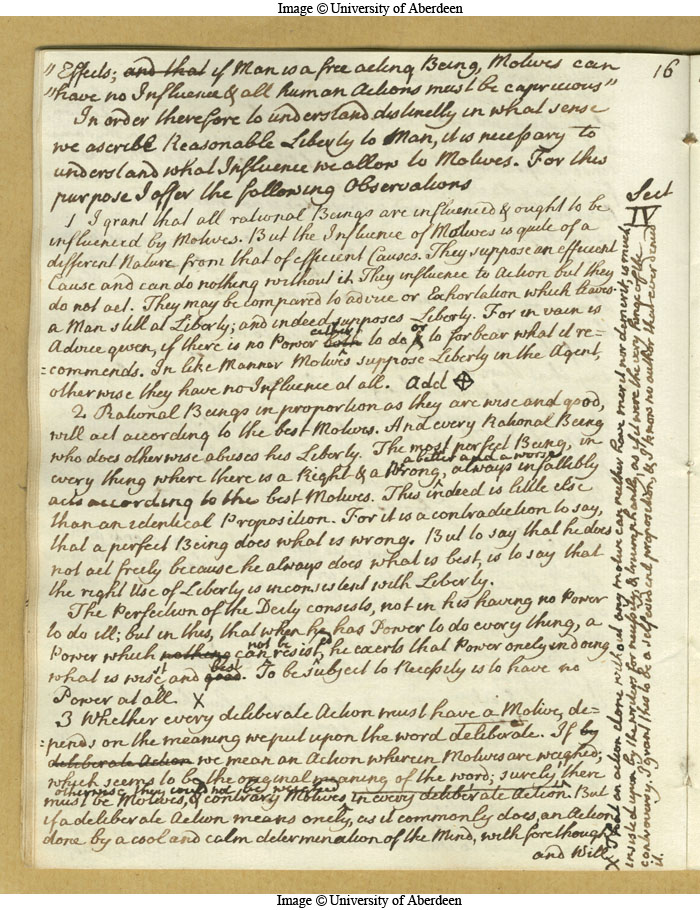 Image © University of Aberdeen
16
" Effects; and that if Man is a free acting Being, Motives can
"have no Influence & all human Actions must be capricious"
In order therefore to understand distinctly in what sense
we ascribe Reasonable Liberty to Man, it is necessary to
understand what Influence we allow to Motives. For this
purpose I offer the following Observations
1 I grant that all rational Beings are influenced & ought to be
influenced by Motives. But the Influence of Motives is quite of a
different Nature from that of efficient Causes. They suppose an efficient
Cause and can do nothing without it They influence to Action but they
do not act. They may be compared to advice or Exhortation which leaves
a Man still at Liberty; and indeed supposes Liberty. For in vain is
either or
Advice given, if there is no Power both to do & to forbear what it re=
=commends. In like Manner Motives suppose Liberty in the Agent,
otherwise they have no Influence at all. Add
2 Rational Beings in proportion as they are wise and good,
will act according to the best Motives. And every Rational Being
who does otherwise abuses his Liberty. The most perfect Being, in
a better and a worse
every thing where there is a Right & a Wrong, always infallibly
acts according to the best Motives. This indeed is little else
than an identical Proposition. For it is a contradiction to say,
that a perfect Being does what is wrong. But to say that he does
not act freely because he always does what is best, is to say that
the right Use of Liberty is inconsistent with Liberty.
The Perfection of the Deity consists, not in his having no Power
to do ill; but in this, that when he has Power to do every thing, a
not be
Power which nothing can resist, he exerts that Power onely in doing
st best
what is wise and good. To be subject to Necessity is to have no
Power at all. X
3 Whether every deliberate Action must have a Motive, de=
=pends on the meaning we put upon the word deliberate. If by
deliberate Action we mean an Action wherein Motives are weighed;
which seems to be the original meaning of the word; surely there
otherwise they could not be weighed
must be Motives, & contrary Motives in every deliberate Action. But
if a deliberate Action means onely, as it commonly does, an Action
done by a cool and calm determination of the Mind, with forethought
and Will
Sect
IV
X That an action done without any motive can neither have merit nor demerit, is much
insisted upon by the writers for necessity & triumphantly, as if it were the very hinge of the
controversy. I grant this to be a self evident proposition, & I know no author that ever denied
it.
Image © University of Aberdeen